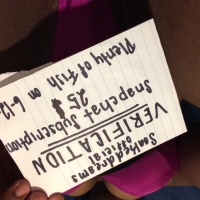 Soakeddreams
official
VERIFICATION
Snapchat Subscription
25$
Plenty of fish on 6-12